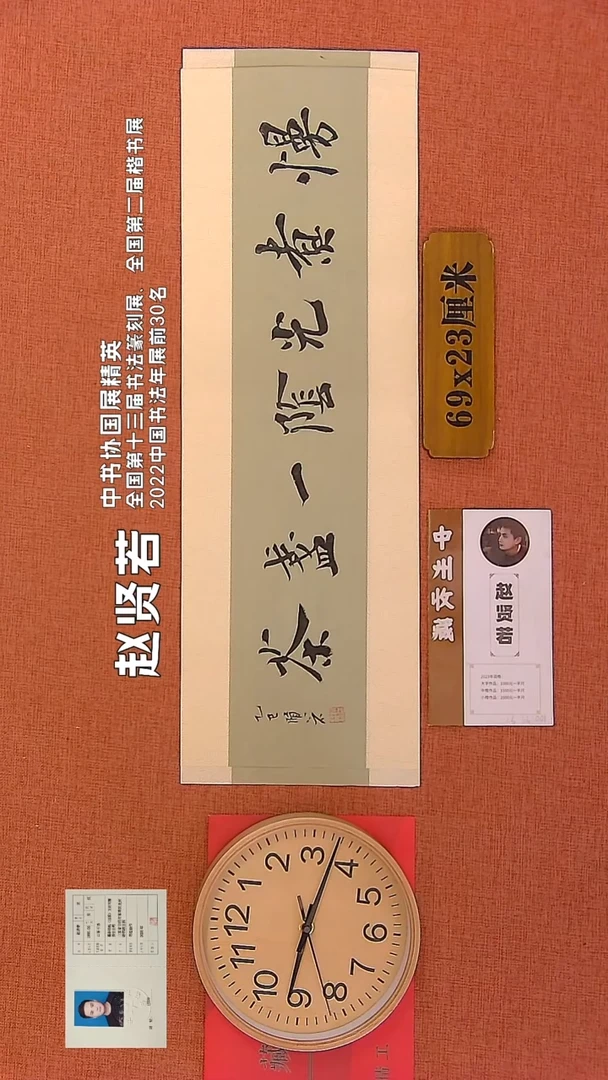 赵贤若
中书协国展精英
全国第十三届书法篆刻展、全国第二届楷书展
2022中国书法年展前30名
慢煮光陰一盞茶
乙巳賢若
69x23厘米
赵贤若
12
1
2
3
4
5
6
7
8
9
10
11
藏
精工